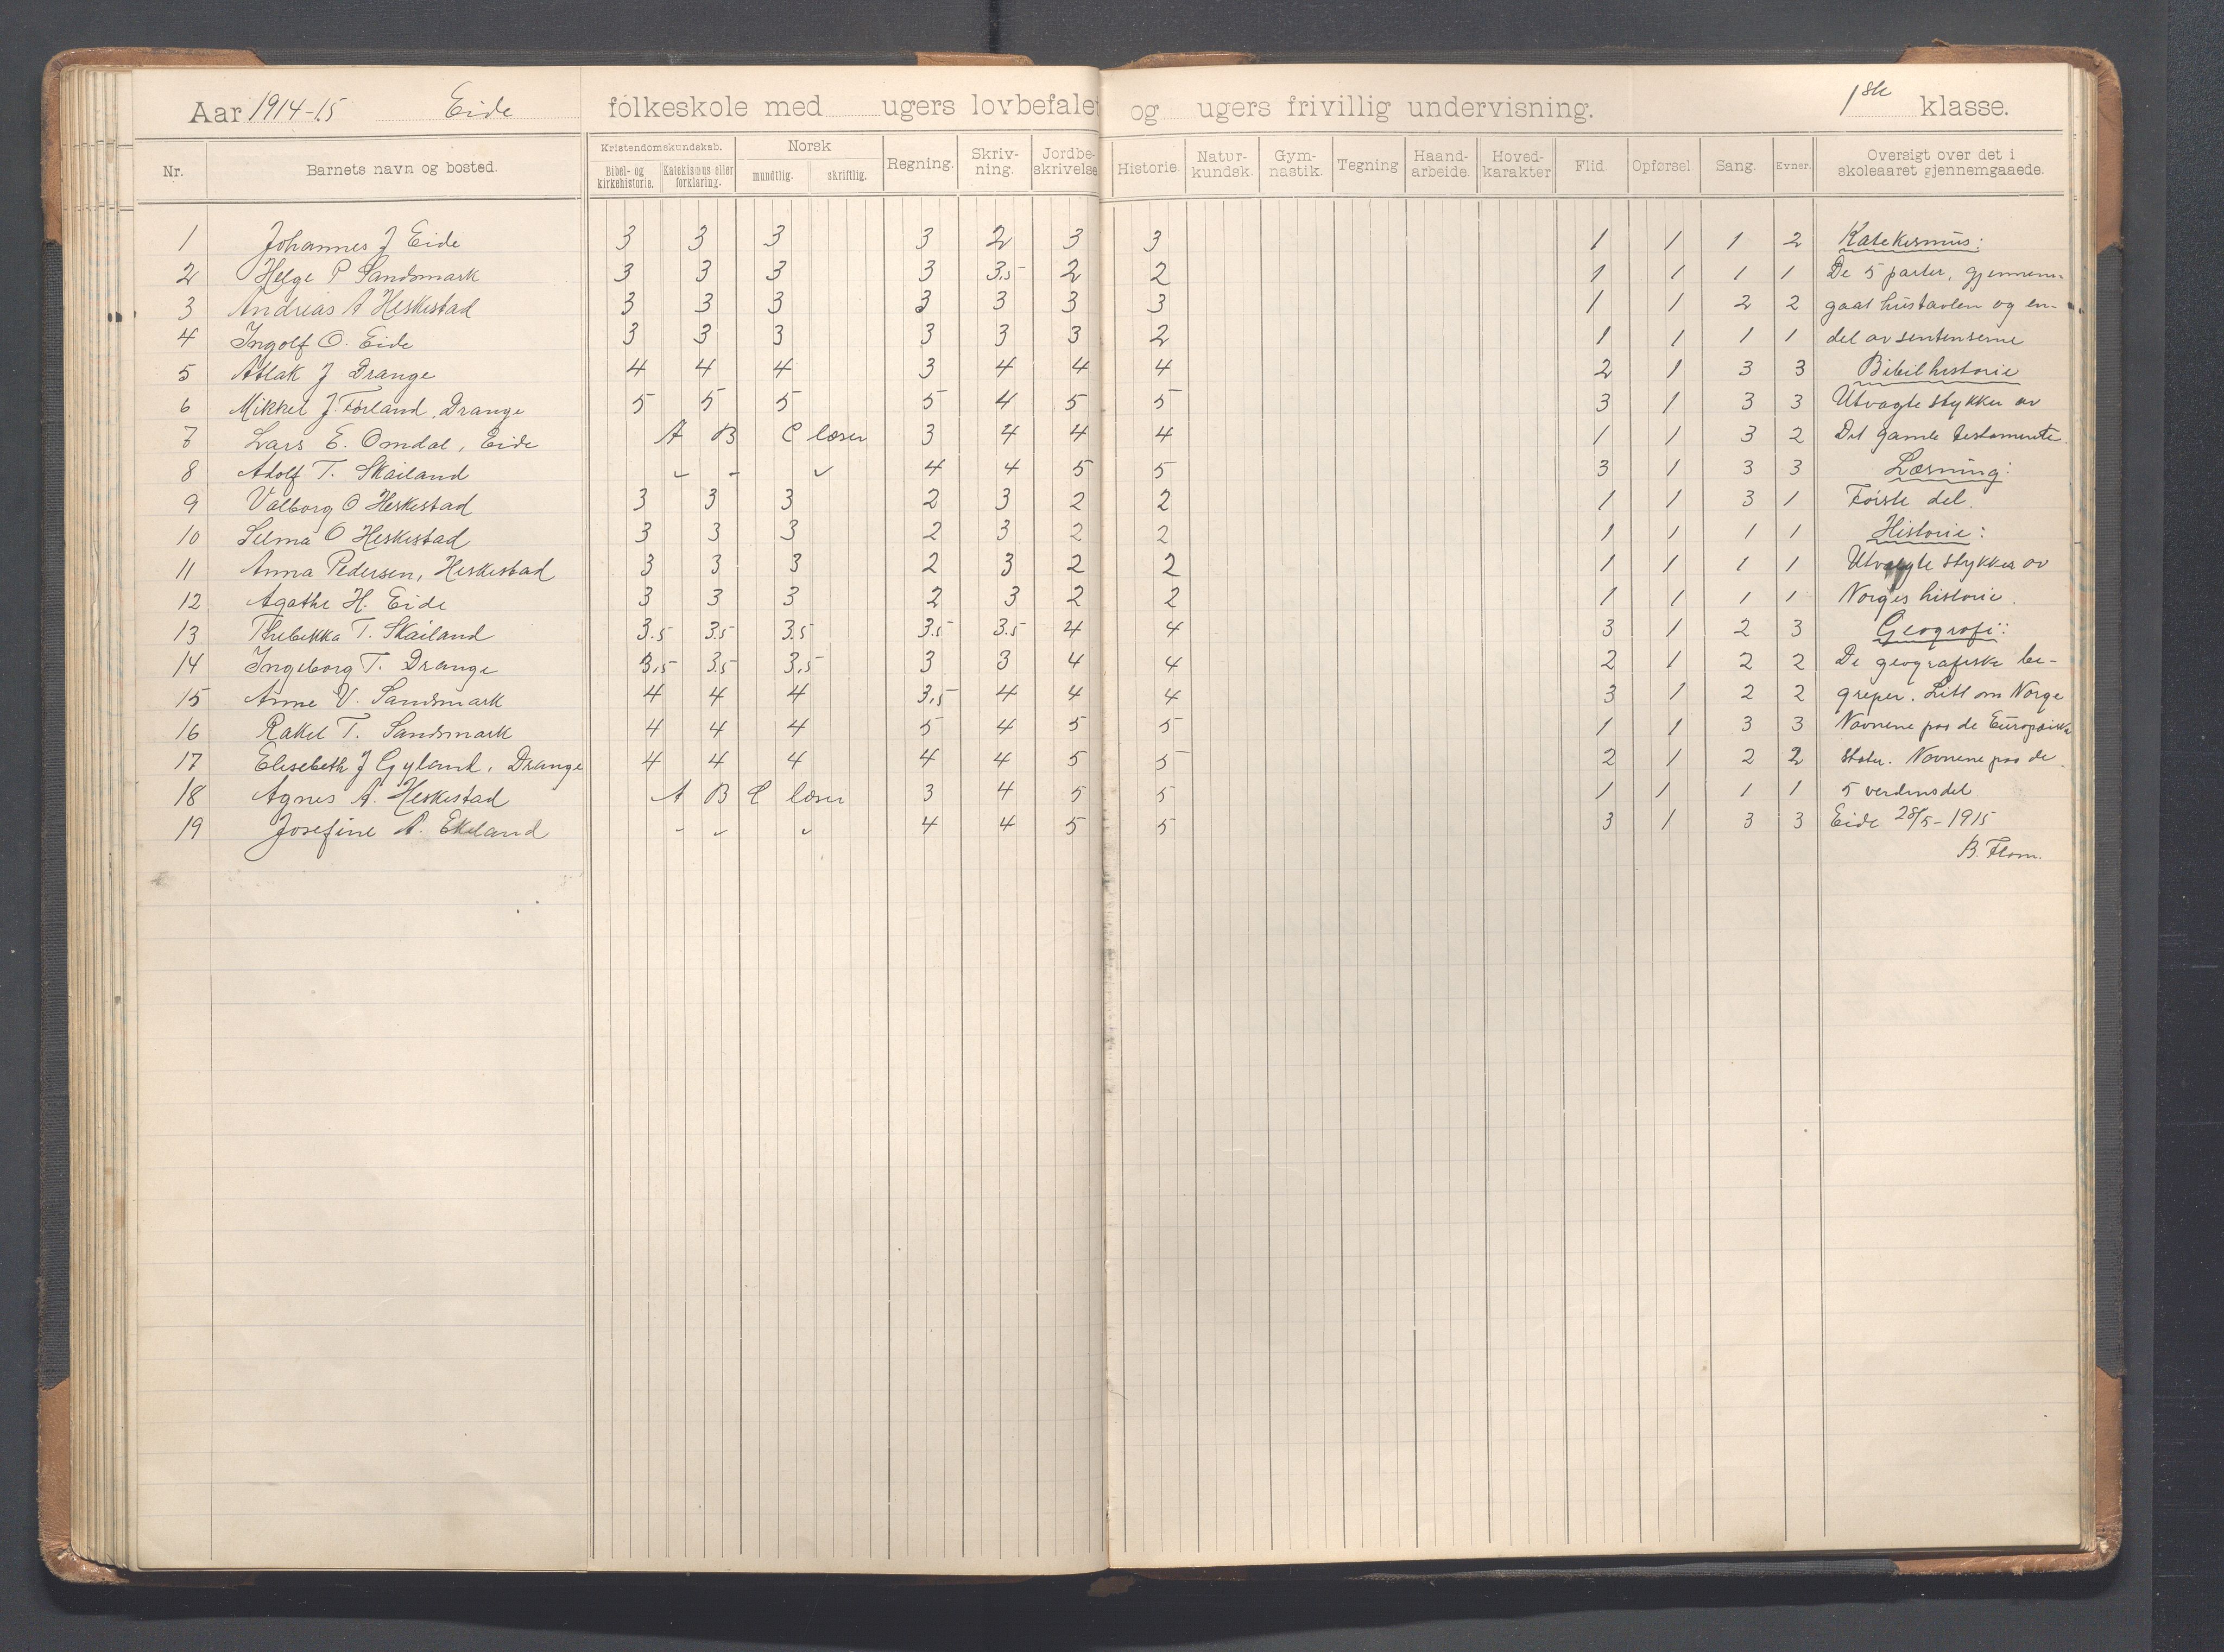 Aar 1914-15 Eide folkeskole med ugers lovbefalet og ugers frivillig undervisning. 1ste klasse.
Nr. Barnets navn og bosted. Kristendomskundskab. Bibel- og kirkehistorie. Katekismus eller forklaring. Norsk mundtlig. skriftlig. Regning. Skriv-ning. Jordbe-skrivelse Historie. Natur-kundsk. Gym-nastik. Tegning Haand-arbeide. Hoved-karakter Flid Opførsel Sang. Evner. Oversigt over det i skoleaaret gjennemgaaede.
1 Johannes J Eide 3 3 3 3 2 3 3 1 1 1 2 Katekismus:
2 Helge P Sandsmark 3 3 3 3 3,5 2 2 1 1 1 1 De 5 parter, gjennem-
3 Andreas A Heskestad 3 3 3 3 3 3 3 1 1 2 2 gaat hustavlen og en-
4 Ingolf O. Eide 3 3 3 3 3 3 2 1 1 1 1 del av sentenserne
5 Atlak J Drange 4 4 4 3 4 4 4 2 1 3 3 Bibelhistorie
6 Mikkel J. Førland, Drange 5 5 5 5 4 5 5 3 1 3 3 Utvagte stykker av
7 Lars E. Omdal, Eide A B C læser 3 4 4 4 1 1 3 2 Det gamle testamente.
8 Adolf T. Skailand " - " 4 4 5 5 3 1 3 3 Læsning:
9 Valborg O Heskestad 3 3 3 2 3 2 2 1 1 3 1 Første del.
10 Selma O Heskestad 3 3 3 2 3 2 2 1 1 1 1 Historie:
11 Anna Pedersen, Heskestad 3 3 3 2 3 2 2 1 1 1 1 Utvalgte stykker av
12 Agathe H. Eide 3 3 3 2 3 2 2 1 1 1 1 Norges historie.
13 Thebekka T. Skailand 3.5 3.5 3.5 3.5 3.5 4 4 3 1 2 3 Geografi:
14 Ingeborg T. Drange 3,5 3.5 3,5 3 3 4 4 2 1 2 2 De geografiske be-
15 Anne V. Sandsmark 4 4 4 3,5 4 4 4 3 1 2 2 greper. Litt om Norge
16 Rakel T. Sandsmark 4 4 4 5 4 5 5 1 1 3 3 Navnene paa de Europæiske
17 Elisebeth J Gyland, Drange 4 4 4 4 4 5 5 2 1 2 2 stater. Navnene paa de
18 Agnes A. Heskestad A B C læser 3 4 5 5 1 1 1 1 5 verdensdel
19 Josefine A. Ekeland " " " 4 4 5 5 3 1 3 3 Eide 28/5-1915
B. Flom.